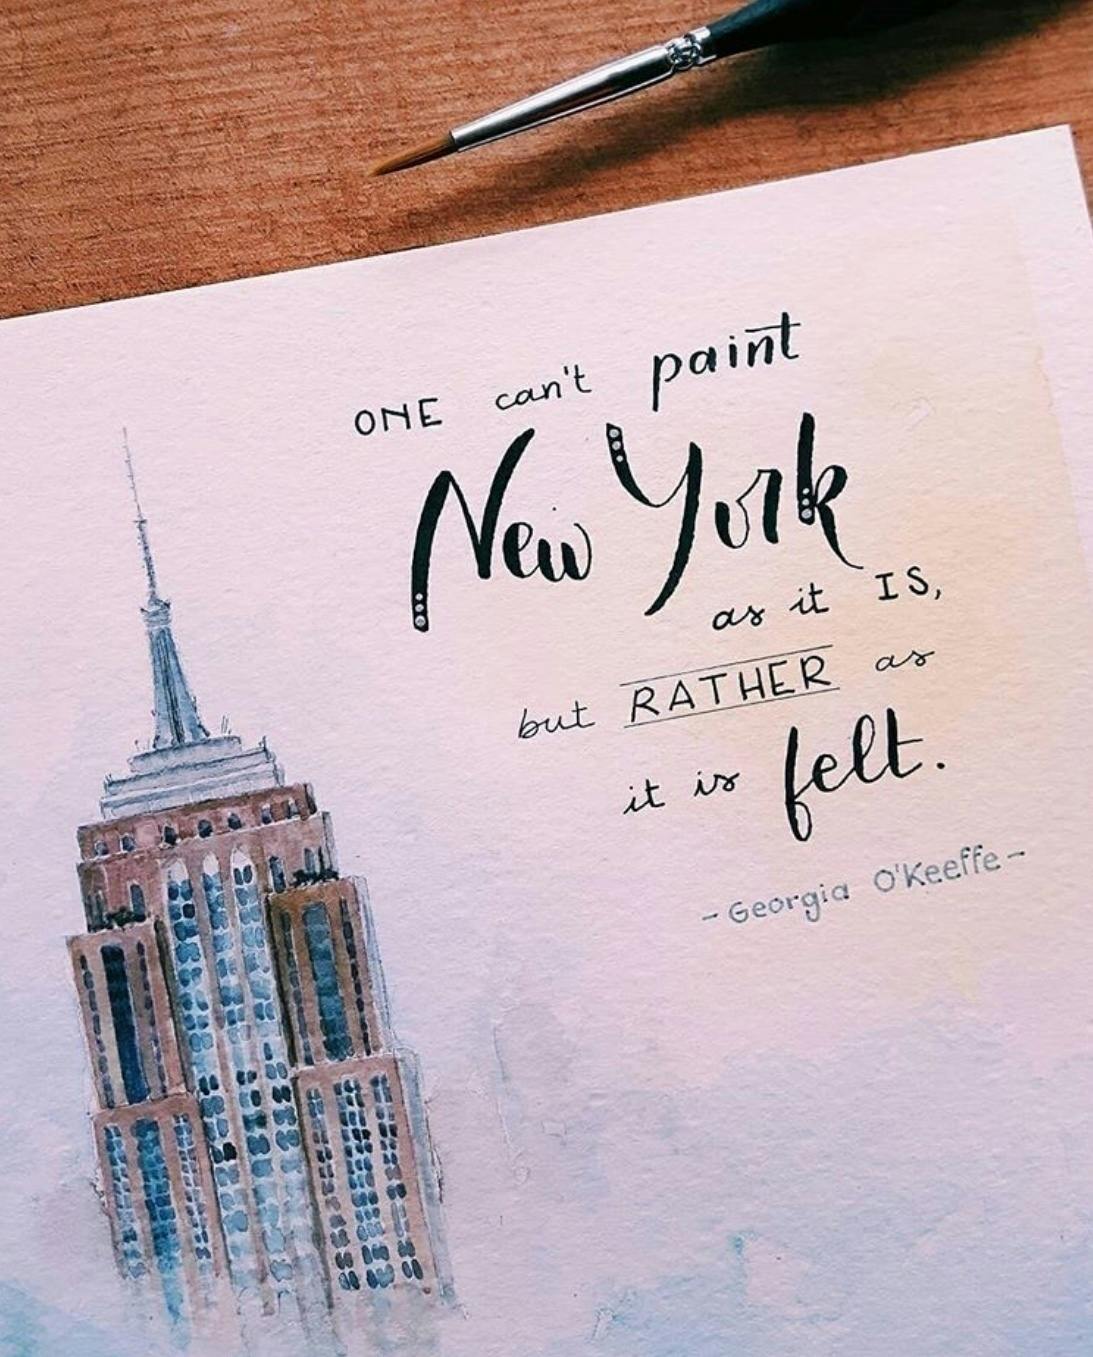 ONE can't paint
New York
as it IS,
but RATHER as
it is felt.
-Georgia O'Keeffe-